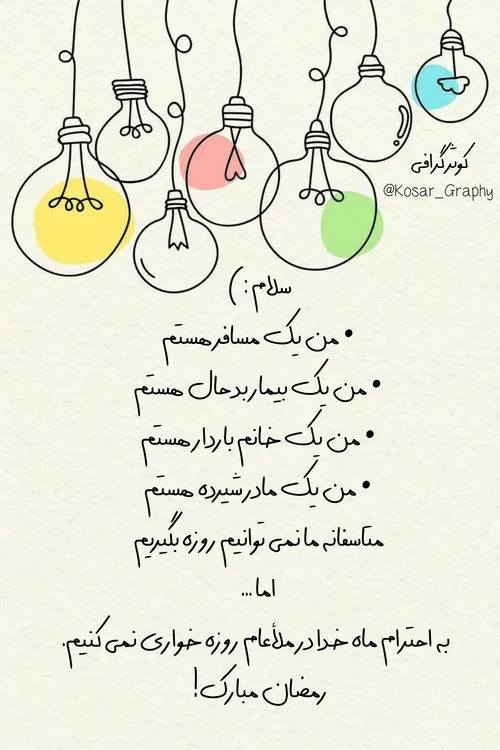 کوثرگرافی
@Kosar_Graphy
سلام :)
• من یک مسافر هستم
• من یک بیمار بدحال هستم
• من یک خانم باردار هستم
• من یک مادر شیرده هستم
متاسفانه ما نمی توانیم روزه بگیریم
اما...
به احترام ماه خدا در ملأعام روزه خواری نمی کنیم.
رمضان مبارک!